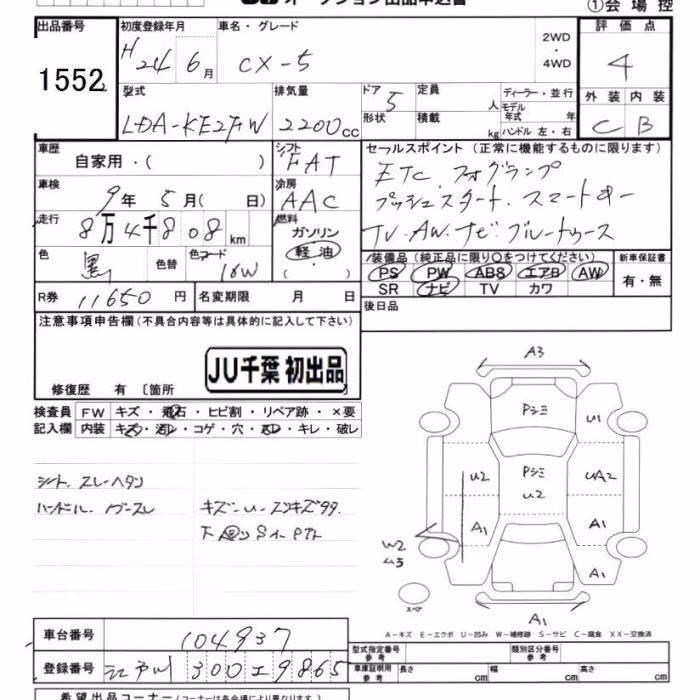 オークション出品申込書
①会場控
出品番号 初度登録年月 車名・グレード 評価点
1552 H 24年 6月 CX-5 2WD ・ 4WD 4
型式 排気量 ドア 定員 ディーラー・並行 外装 内装
LDA-KE2FW 2200cc 5 人 モデル年式 年 C B
形状 積載 kg ハンドル 左・右
車歴 自家用・( ) シフト FAT セールスポイント (正常に機能するものに限ります)
車検 9年 5月( 日) 冷房 AAC ETC フォグランプ
プッシュスタート スマートキー
走行 8万4千808km 燃料 ガソリン 軽油 ( ・ ) TV AW ナビ ブルートゥース
色 黒 色替 色コード 16W 装備品 (純正品に限り〇をつけてください) 新車保証書
PS PW ABS エアB AW 有・無
SR ナビ TV カワ
R券 11650円 名変期限 月 日 後日品
注意事項申告欄 (不具合内容等は具体的に記入して下さい)
JU千葉 初出品
修復歴 有 〔箇所
検査員 FW キズ・飛石・ヒビ割・リペア跡・×要
記入欄 内装 キズ・汚レ・コゲ・穴・スレ・キレ・破レ
シート スレ・ヘタリ
ハンドル
A3
Pシミ
U1
U2 Pシミ U2 UA2
A1 A1
W2
A1
スペア
A1
A-キズ E-エクボ U-凹み W-補修跡 S-サビ C-腐食 XX-交換済
車台番号 104937 型式指定番号 参考 類別区分番号 参考
登録番号 江戸川 300 エ 9865 車庫証明用 参考 長さ cm 幅 cm 高さ cm
希望出品コーナー (コーナーは各会場により異なります。)